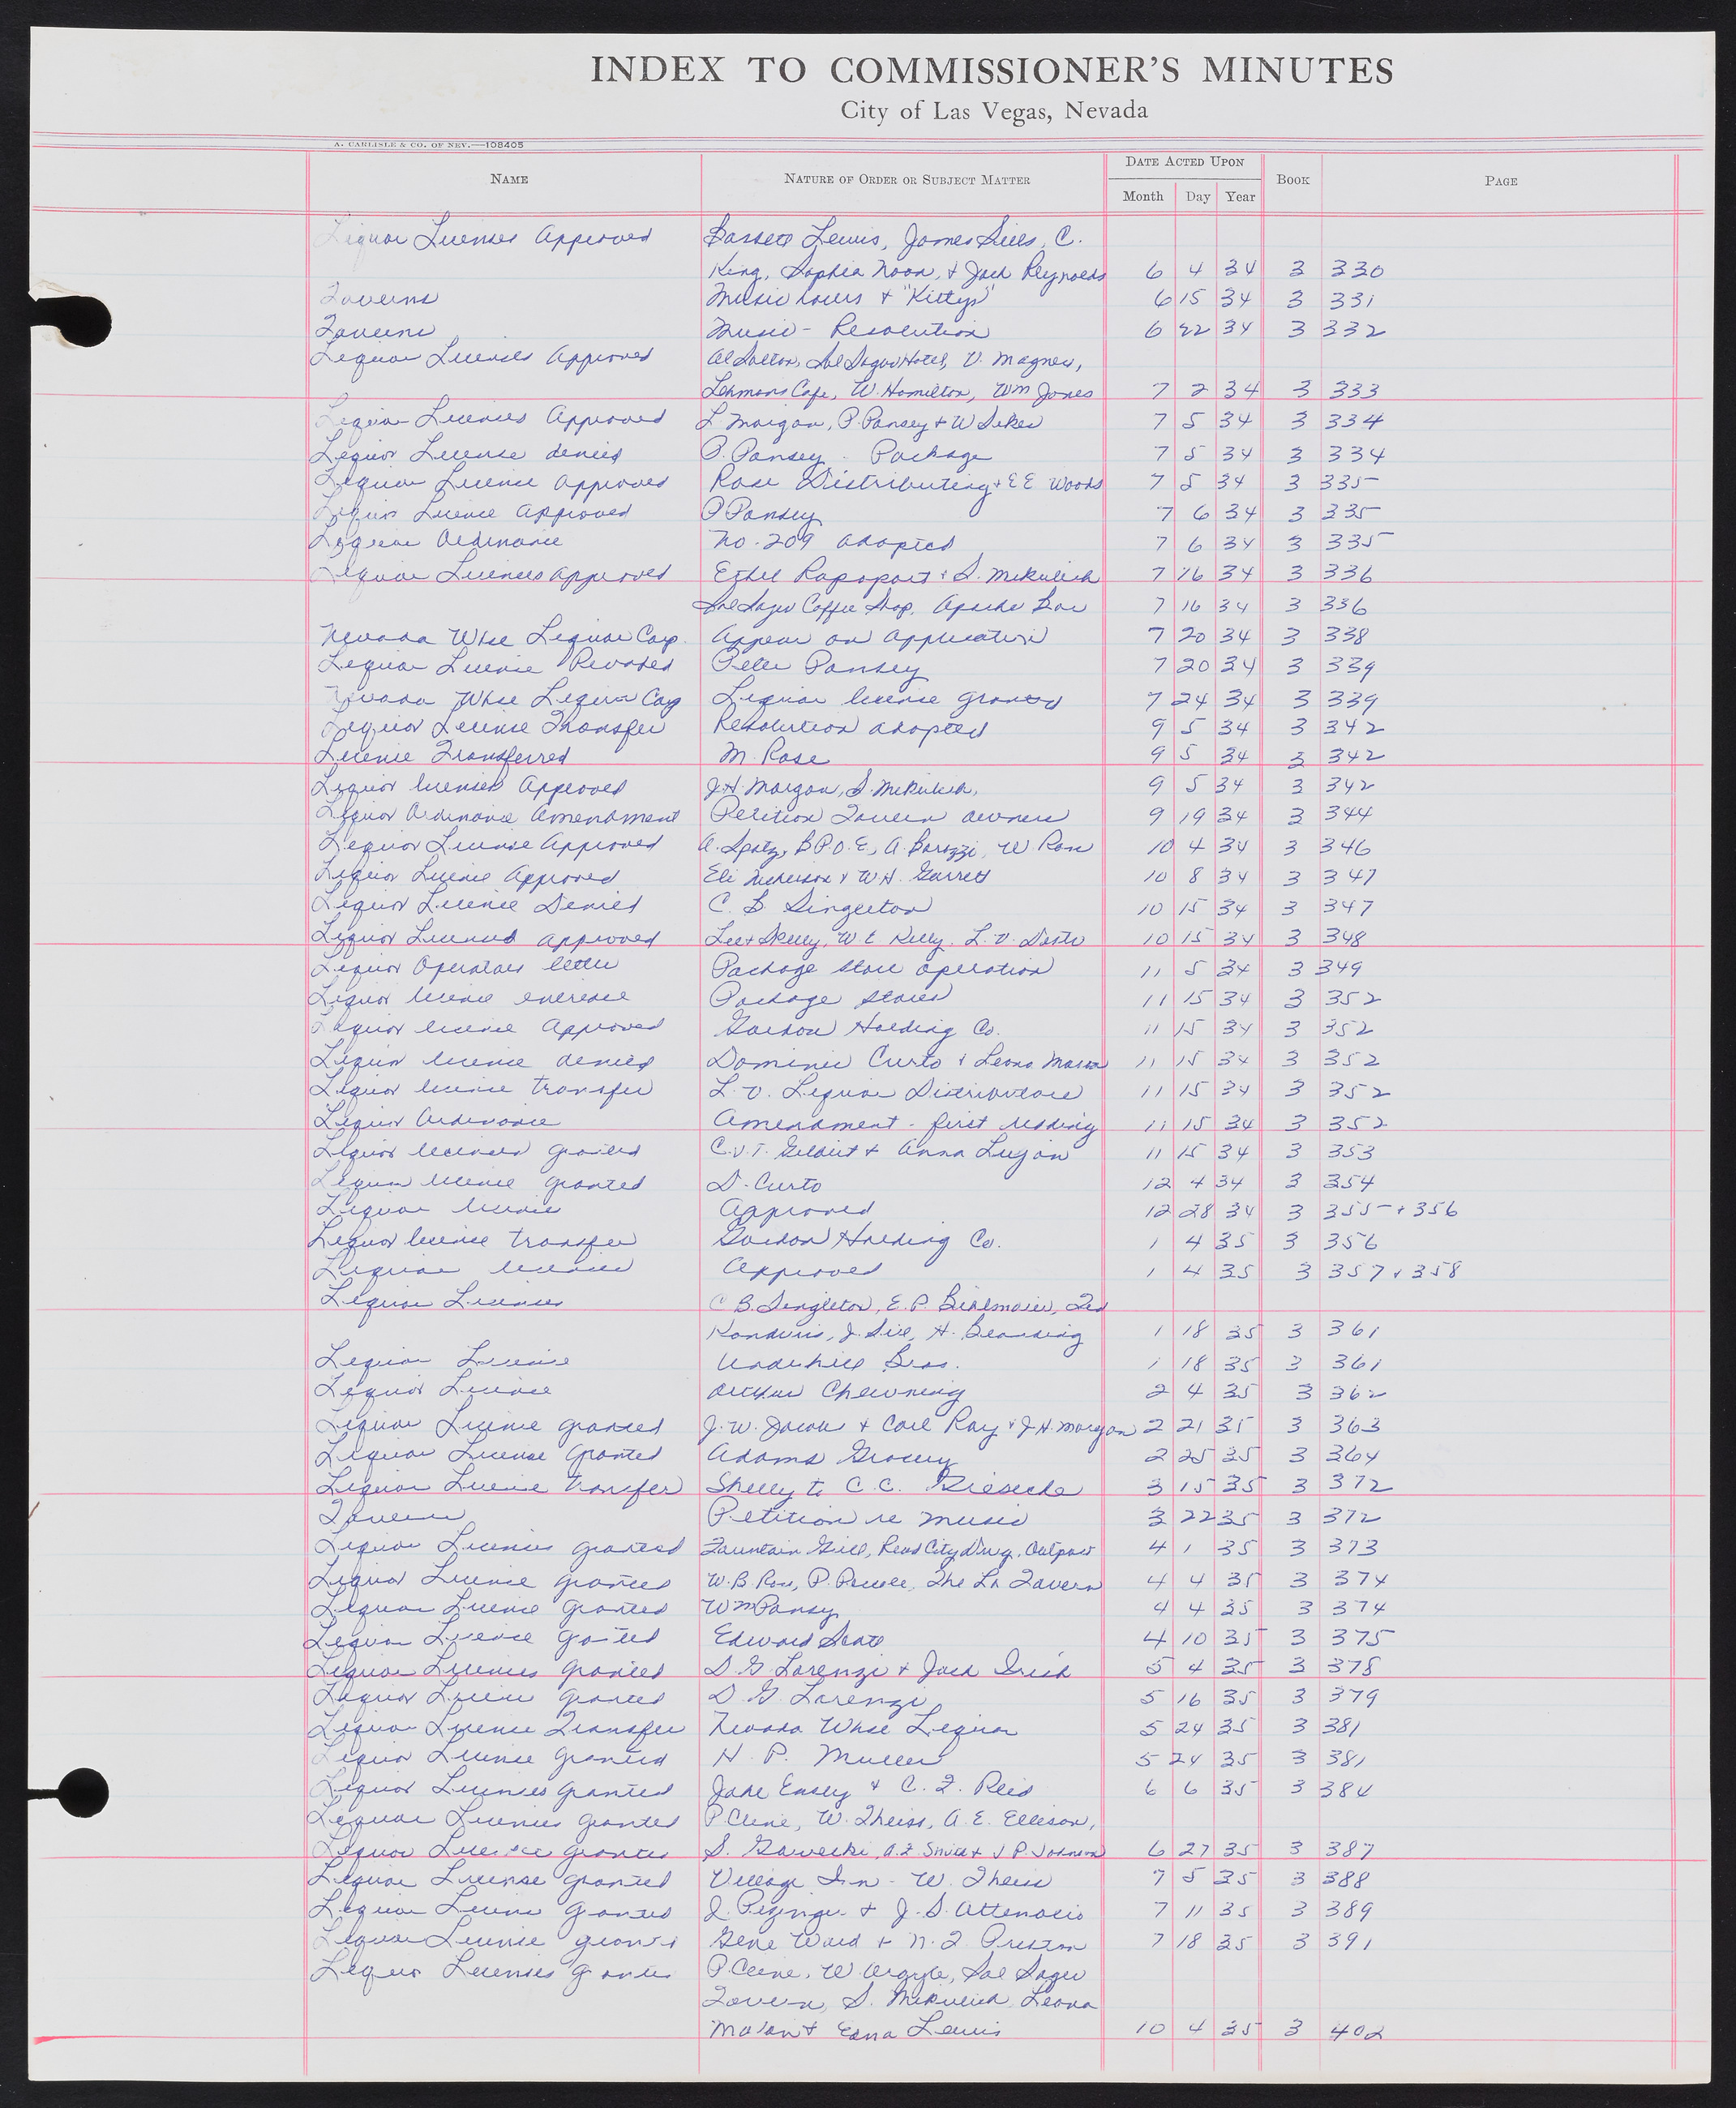 INDEX TO COMMISSIONER'S MINUTES
City of Las Vegas, Nevada
A. CARLISLE & CO. OF NEV.—108405
NAME NATURE OF ORDER OR SUBJECT MATTER DATE ACTED UPON Month Day Year BOOK PAGE
Liquor Licenses Approved Lewis, James Sills, C.
King, Sophia Noon, & Jack Reynolds 6 4 34 3 330
Taverns Music hours & "Kittys" 6 15 34 3 331
Taverns Music - Resolution 6 22 34 3 332
Liquor Licenses Approved Al Salton, Sal Sagev Hotel, V. Magnes,
Lehmans Cafe, W. Hamilton, Wm Jones 7 2 34 3 333
Liquor Licenses Approved L. Morgan, P. Pansey & W Sikes 7 5 34 3 334
Liquor License denied P. Pansey - Package 7 5 34 3 334
Liquor License Approved Rose Distributing & E E Woods 7 5 34 3 335
Liquor License Approved P Pansey 7 6 34 3 335
Liquor Ordinance No. 209 adopted 7 6 34 3 335
Liquor Licenses Approved Ethel Rapaport & S. Mikulich 7 16 34 3 336
Sal Sagev Coffee Shop, Apache Bar 7 16 34 3 336
Nevada Whse Liquor Corp. Appear on application 7 20 34 3 338
Liquor License Revoked Peter Pansey 7 20 34 3 339
Nevada Whse Liquor Corp Liquor license granted 7 24 34 3 339
Liquor License Transfer Resolution adopted 9 5 34 3 342
License Transferred M. Rose 9 5 34 3 342
Liquor licenses Approved J.H. Morgan, S. Mikulich, 9 5 34 3 342
Liquor Ordinance Amendment Petition Tavern owners 9 19 34 3 344
Liquor License Approved A. Spatz, B.P.O.E., A. Barozzi, W. Rose 10 4 34 3 346
Liquor License Approved Eli Nickerson & W.H. Garrett 10 8 34 3 347
Liquor License Denied C. B. Singleton 10 15 34 3 347
Liquor Licenses approved Lee & Skelly, W E Kelly, L.V. Distr 10 15 34 3 348
Liquor Operators letter Package store operation 11 5 34 3 349
Liquor license increase Package stores 11 15 34 3 352
Liquor license Approved Gordon Holding Co. 11 15 34 3 352
Liquor license denied Dominic Curto & Leona Mason 11 15 34 3 352
Liquor license transfer L.V. Liquor Distributors 11 15 34 3 352
Liquor Ordinance Amendment - first reading 11 15 34 3 352
Liquor licenses granted C.V.T. Gilbert & Anna Lujan 11 15 34 3 353
Liquor license granted D. Curto 12 4 34 3 354
Liquor licenses Approved 12 28 34 3 355 + 356
Liquor license transfer Gordon Holding Co. 1 4 35 3 356
Liquor licenses Approved 1 4 35 3 357 & 358
Liquor Licenses C B. Singleton, E. P. Ted
J. Sill, H. 1 18 35 3 361
Liquor License Underhill Bros. 1 18 35 3 361
Liquor License Arthur Chewning 2 4 35 3 362
Liquor License granted J. W. Jacobs & Carl Ray & J.H. Morgan 2 21 35 3 363
Liquor License Granted Adams Grocery 2 25 35 3 364
Liquor License transfer Skelly to C. C. Giesecke 3 15 35 3 372
Tavern Petition re music 3 22 35 3 372
Liquor Licenses granted Fountain Grill, Read City Drug, Outpost 4 1 35 3 373
Liquor License granted W. B. Rose, P. The Ln Tavern 4 4 35 3 374
Liquor License Granted Wm Pansy 4 4 35 3 374
Liquor License granted Edward 4 10 35 3 375
Liquor Licenses granted D. G. Lorenzi & Jack Irish 5 4 35 3 378
Liquor License granted D. G. Lorenzi 5 16 35 3 379
Liquor License Transfer Nevada Whse Liquor 5 24 35 3 381
Liquor License Granted H. P. Muller 5 24 35 3 381
Liquor Licenses granted Jake Easley & C. F. Reid 6 6 35 3 384
Liquor Licenses Granted P. Cline, W. Theiss, A. E. Ellison,
Liquor License Granted S. Gawecki, A.F. Smith & J P. Johnson 6 27 35 3 387
Liquor License granted Village Inn - W. Theiss 7 5 35 3 388
Liquor License Granted & J. S. Attenacio 7 11 35 3 389
Liquor License granted Gene Ward & N. F. Preston 7 18 35 3 391
Liquor Licenses granted P. Cline, W. Argyle, Sal Sagev
Tavern, S. Mikulich, Leona
Mason & Edna Lewis 10 4 35 3 402